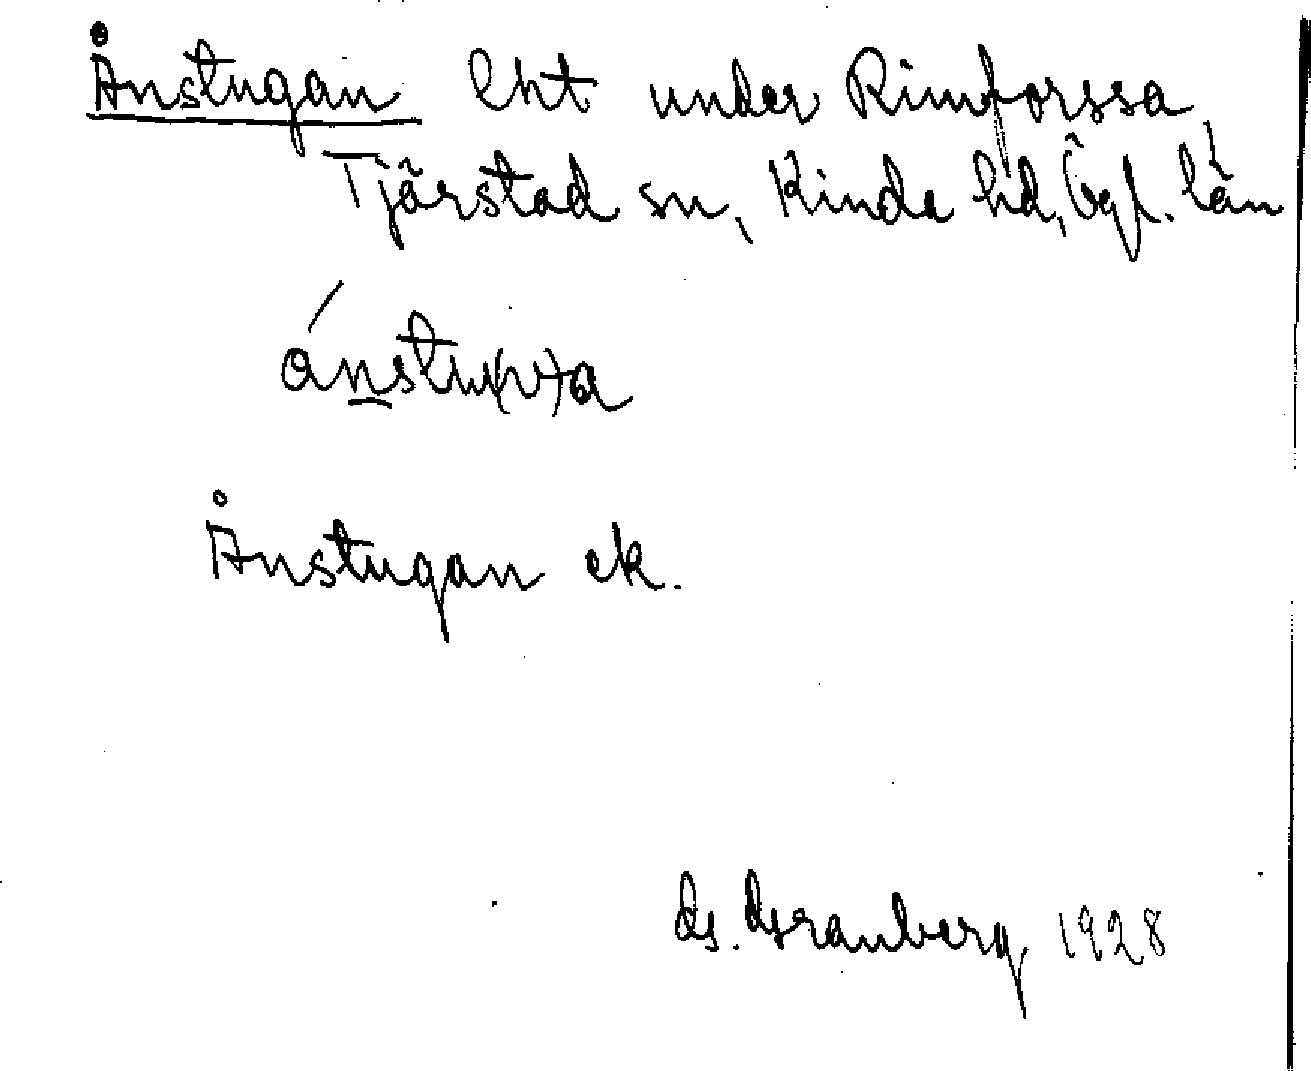 Ånstugan lht under Rimforssa,
Tjärstad sn, Kinda hd, Ögl. län
ånstu(w)a
Ånstugan ek.
G. Granberg 1928